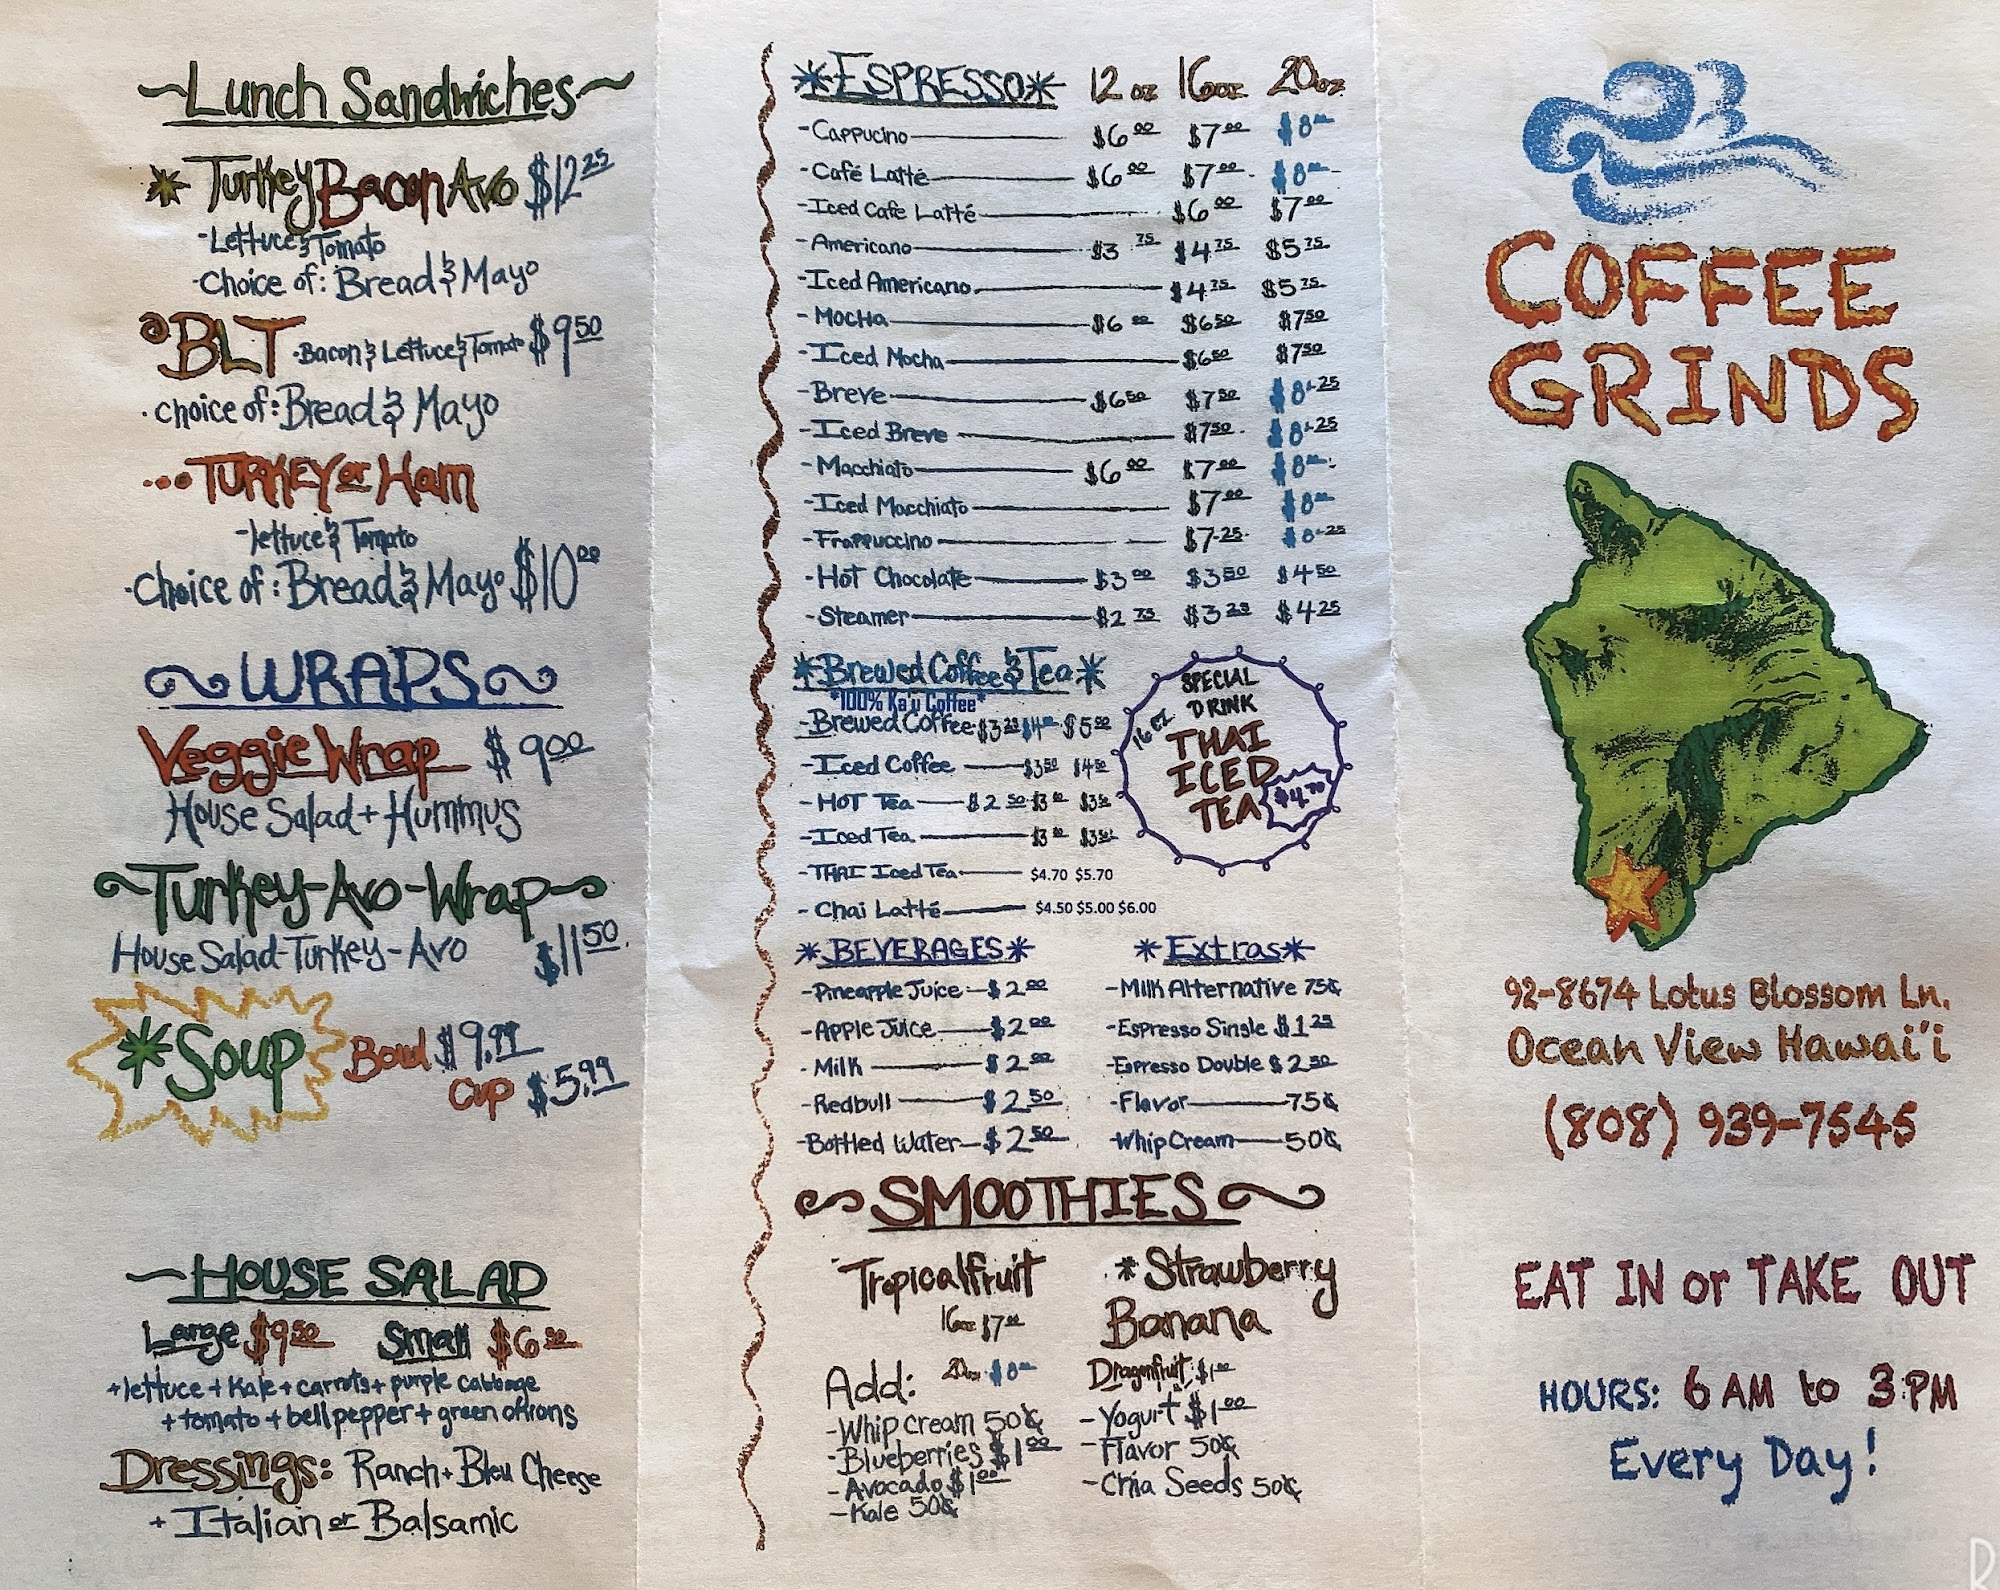 ~Lunch Sandwiches~
*Turkey Bacon Avo $12.25
-Lettuce & Tomato
-Choice of: Bread & Mayo
BLT -Bacon & Lettuce & Tomato $9.50
·choice of: Bread & Mayo
...TURKEY or Ham
-lettuce & Tomato
-Choice of: Bread & Mayo $10.00
~WRAPS~
Veggie Wrap $9.00
House Salad + Hummus
~Turkey-Avo-Wrap~
House Salad-Turkey-Avo $11.50
*Soup Bowl $9.99
Cup $5.99
~HOUSE SALAD
Large $9.50 Small $6.50
+lettuce + Kale + carrots + purple cabbage
+tomato + bell pepper + green onions
Dressings: Ranch + Bleu Cheese
+ Italian or Balsamic
*ESPRESSO* 12 oz 16 oz 20 oz
-Cappucino $6.00 $7.00 $8.00
-Café Latté $6.00 $7.00 $8.00
-Iced Cafe Latté $6.00 $7.00
-Americano $3.75 $4.75 $5.75
-Iced Americano $4.75 $5.75
-Mocha $6.00 $6.50 $7.50
-Iced Mocha $6.50 $7.50
-Breve $6.50 $7.50 $8.25
-Iced Breve $7.50 $8.25
-Macchiato $6.00 $7.00 $8.00
-Iced Macchiato $7.00 $8.00
-Frappuccino $7.25 $8.25
-Hot Chocolate $3.00 $3.50 $4.50
-Steamer $2.75 $3.25 $4.25
*Brewed Coffee & Tea*
*100% Ka'u Coffee*
-Brewed Coffee $3.25 $4.00 $5.00
-Iced Coffee $3.50 $4.50
-HOT Tea $2.50 $3.00 $3.50
-Iced Tea $3.00 $3.50
-THAI Iced Tea $4.70 $5.70
-Chai Latté $4.50 $5.00 $6.00
SPECIAL
DRINK
16 oz
THAI
ICED
TEA $4.70
*BEVERAGES*
-Pineapple Juice $2.00
-Apple Juice $2.00
-Milk $2.00
-Redbull $2.50
-Bottled Water $2.50
*Extras*
-Milk Alternative 75¢
-Espresso Single $1.25
-Espresso Double $2.50
-Flavor 75¢
-Whip Cream 50¢
SMOOTHIES
Tropicalfruit
16oz $7.00
20oz $8.00
*Strawberry
Banana
Add:
-Whip cream 50¢
-Blueberries $1.00
-Avocado $1.00
-Kale 50¢
Dragonfruit $1.00
-Yogurt $1.00
-Flavor 50¢
-Chia Seeds 50¢
COFFEE
GRINDS
92-8674 Lotus Blossom Ln.
Ocean View Hawai'i
(808) 939-7545
EAT IN or TAKE OUT
HOURS: 6 AM to 3 PM
Every Day!
R